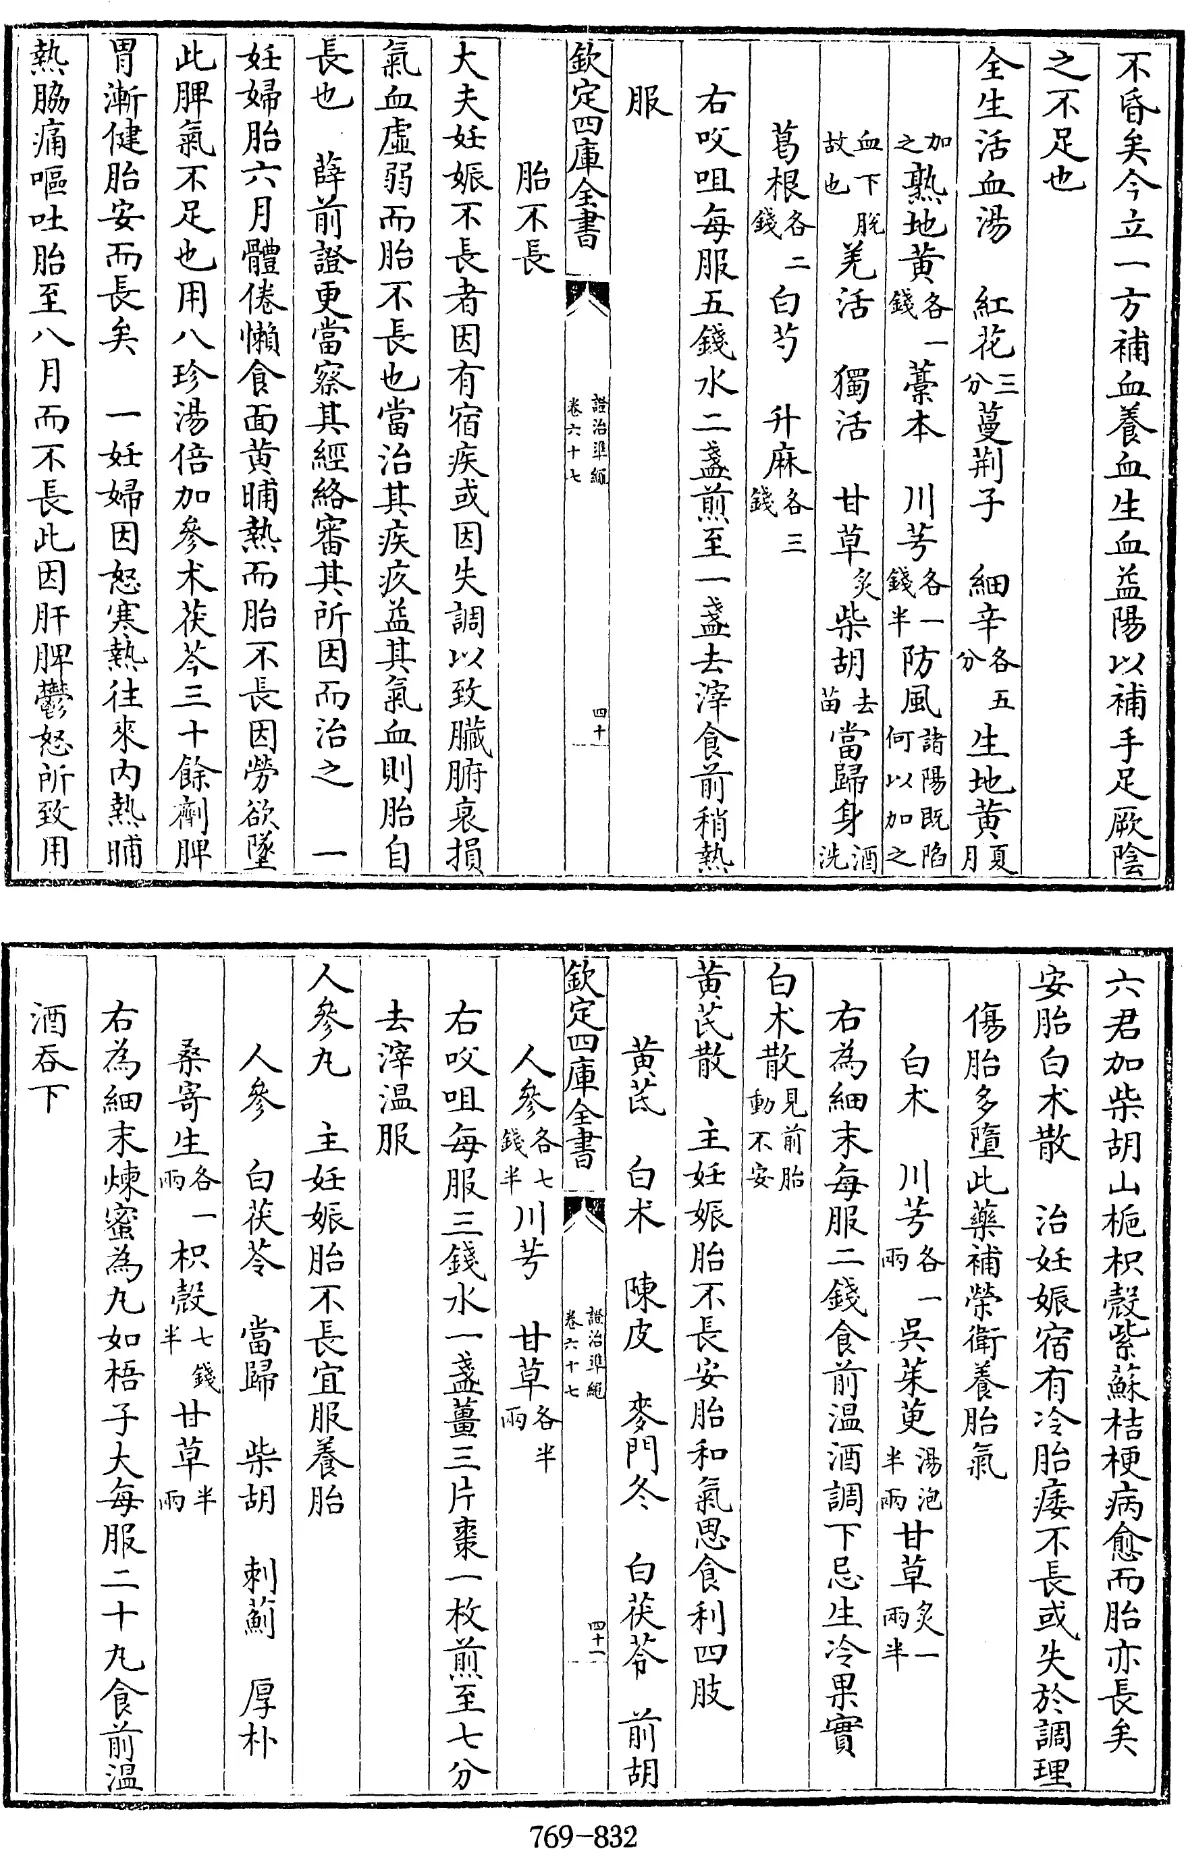 不昏矣今立一方補血養血生血益陽以補手足厥陰
之不足也
全生活血湯　紅花三分蔓荆子　細辛各五分生地黄夏月
加之熟地黄各一錢藁本　川芎各一錢半防風諸陽既陷何以加之
血下脫故也羌活　獨活　甘草炙柴胡去苗當歸身酒洗
葛根各二錢白芍　升麻各三錢
右㕮咀每服五錢水二盞煎至一盞去滓食前稍熱
服
欽定四庫全書　證治準繩卷六十七　四十
胎不長
大夫妊娠不長者因有宿疾或因失調以致臟腑衰損
氣血虛弱而胎不長也當治其疾疢益其氣血則胎自
長也　薛前證更當察其經絡審其所因而治之　一
妊婦胎六月體倦懶食面黄晡熱而胎不長因勞欲墜
此脾氣不足也用八珍湯倍加參术茯苓三十餘劑脾
胃漸健胎安而長矣　一妊婦因怒寒熱往來内熱晡
熱脇痛嘔吐胎至八月而不長此因肝脾鬱怒所致用
六君加柴胡山梔枳殼紫蘇桔梗病愈而胎亦長矣
安胎白术散　治妊娠宿有冷胎痿不長或失於調理
傷胎多墮此藥補榮衛養胎氣
白术　川芎各一兩吳茱萸湯泡半兩甘草炙一兩半
右為細末每服二錢食前温酒調下忌生冷果實
白术散見前胎動不安
黄芪散　主妊娠胎不長安胎和氣思食利四肢
黄芪　白术　陳皮　麥門冬　白茯苓　前胡
欽定四庫全書　證治準繩卷六十七　四十一
人參各七錢半川芎　甘草各半兩
右㕮咀每服三錢水一盞薑三片棗一枚煎至七分
去滓温服
人參丸　主妊娠胎不長宜服養胎
人參　白茯苓　當歸　柴胡　刺薊　厚朴
桑寄生各一兩枳殼七錢半甘草半兩
右為細末煉蜜為丸如梧子大每服二十丸食前温
酒吞下
769-832